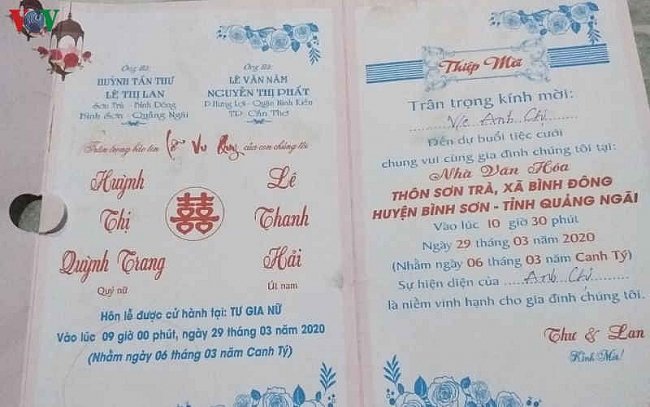 VOV
Ông Bà:
HUỲNH TẤN THƯ
LÊ THỊ LAN
Sơn Trà - Bình Đông
Bình Sơn - Quảng Ngãi
Ông Bà:
LÊ VĂN NĂM
NGUYỄN THỊ PHẤT
P Hưng Lợi - Quận Ninh Kiều
TP. Cần Thơ
Trân trọng báo tin Lễ Vu Quy của con chúng tôi
Huỳnh
Thị
Quỳnh Trang
Quý nữ
囍
Lê
Thanh
Hải
Út nam
Hôn lễ được cử hành tại: TƯ GIA NỮ
Vào lúc 09 giờ 00 phút, ngày 29 tháng 03 năm 2020
(Nhằm ngày 06 tháng 03 năm Canh Tý)
Thiệp Mời
Trân trọng kính mời:
Anh Chị
Đến dự buổi tiệc cưới
chung vui cùng gia đình chúng tôi tại:
Nhà Văn Hóa
THÔN SƠN TRÀ, XÃ BÌNH ĐÔNG
HUYỆN BÌNH SƠN - TỈNH QUẢNG NGÃI
Vào lúc 10 giờ 30 phút
Ngày 29 tháng 03 năm 2020
(Nhằm ngày 06 tháng 03 năm Canh Tý)
Sự hiện diện của Anh Chị
là niềm vinh hạnh cho gia đình chúng tôi.
Thư & Lan
Kính Mời!